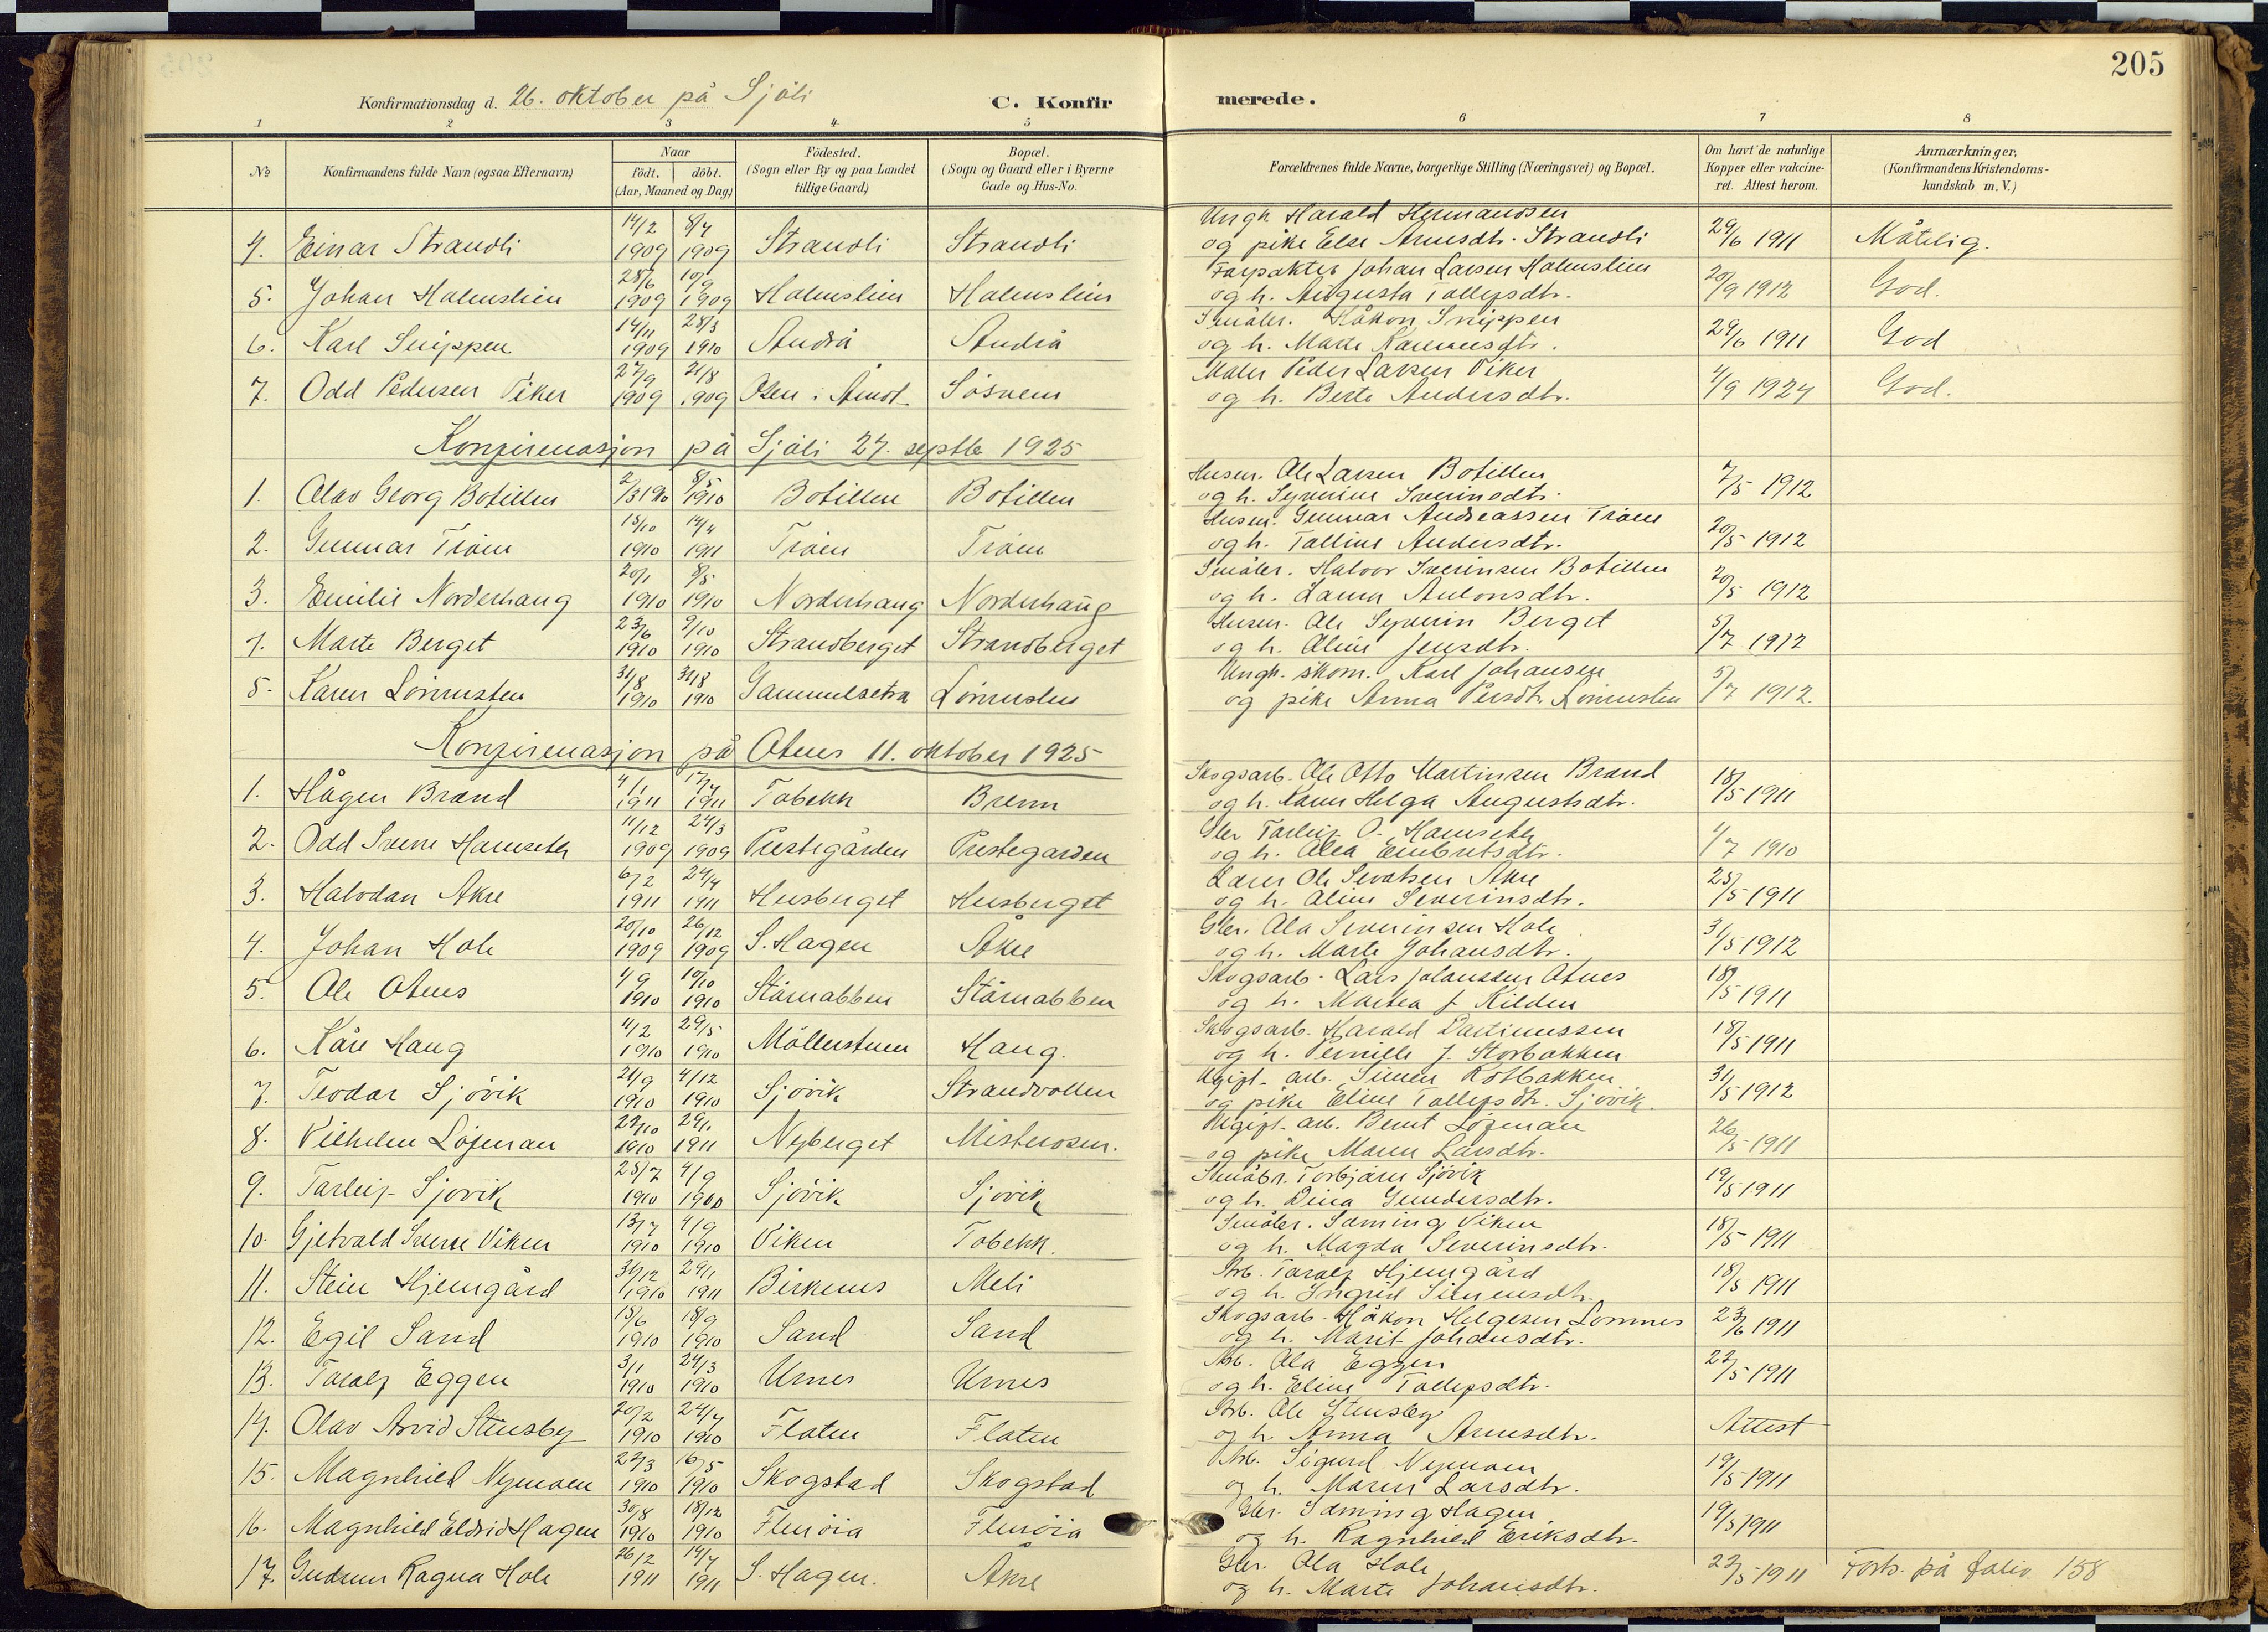 205
Konfirmationsdag d. 26. oktober på Sjöli
C. Konfirmerede.
1 2 3 4 5 6 7 8
No
Konfirmandens fulde Navn (ogsaa Efternavn)
Naar
födt. döbt.
(Aar, Maaned og Dag)
Födested.
(Sogn eller By og paa Landet
tillige Gaard)
Bopæl.
(Sogn og Gaard eller i Byerne
Gade og Hus-No.
Forældrenes fulde Navne, borgerlige Stilling (Næringsvei) og Bopæl.
Om havt de naturlige
Kopper eller vakcine-
ret. Attest herom.
Anmærkninger,
(Konfirmandens Kristendoms-
kundskab m. V.)
4. Einar Strandli 14/2 1909 8/4 1909 Strandli Strandli Ungk. Harald Hermandsen
og pike Else Arnesdtr. Strandli 29/6 1911 Måtelig.
5. Johan Holmslien 28/6 1909 10/9 1909 Holmslien Holmslien Forpakter Johan Larsen Holmslien
og h. Augusta Tollefsdtr. 20/9 1912 God.
6. Karl Snippen 14/11 1909 28/3 1910 Andrå Andrå Småbr. Håkon Snippen
og h. Marte 29/6 1911 God
7. Odd Pedersen Viker 27/9 1909 21/8 1909 Osen i Åmot Sösveen Maler Peder Larsen Viker
og h. Berte Andersdtr. 4/9 1924 God.
Konfirmasjon på Sjöli 27. septbr 1925
1. Olav Georg Botillen 2/3 1910 8/5 1910 Botillen Botillen Husm. Ole Larsen Botillen
og h. Syverine Sverinsdtr. 7/5 1912
2. Gunnar Tröen 15/10 1910 14/4 1911 Tröen Tröen Husm. Gunnar Andreassen Tröen
og h. Talline Andersdtr. 20/5 1912
3. Emilie Norderhaug 20/1 1910 8/5 1910 Norderhaug Norderhaug Småbr. Halvor Sverinsen Botillen
og h. Laura Antonsdtr. 20/5 1912
4. Marte Berget 23/6 1910 9/10 1910 Strandberget Strandberget Husm. Ole Syverin Berget
og h. Oline Jensdtr. 5/7 1912
5. Karen Lönnusten 31/8 1910 31/8 1910 Gammelsetra Lönnusten Ungk. skom. Karl Johansen
og pike Anna Persdtr. Lönnusten 5/7 1912.
Konfirmasjon på Otnes 11. oktober 1925
1. Hågen Brænd 4/1 1911 17/4 1911 Tobekk Brenn Skogsarb. Ole Otto Martinsen Brænd
og h. Karen Helga Augustsdtr. 18/5 1911
2. Odd Sverre Hamseth 11/12 1909 24/3 1909 Prestegården Prestegården Gbr Torleif O. Hamseth
og h. Olea Embretsdtr. 4/7 1910
3. Halvdan Akre 6/2 1911 24/4 1911 Husberget Husberget Lærer Ole Sivatsen Akre
og h. Oline Severinsdtr. 25/5 1911
4. Johan Hole 20/10 1909 26/12 1909 S. Hagen Åkre Gbr. Ola Severinsen Hole
og h. Marte Johansdtr. 31/5 1912
5. Ole Otnes 4/9 1910 10/10 1910 Stårnabben Stårnabben Skogsarb. Lars Johanssen Otnes
og h. Martea J. Kilden 18/5 1911
6. Kåre Haug 11/2 1910 29/5 1910 Möllerstuen Haug. Skogsarb. Harald Dartinussen
og h. Pernille J. Storbakken 18/5 1911
7. Teodor Sjövik 21/9 1910 4/12 1910 Sjövik Strandvollen Ugift arb. Simen Rötbakken
og pike Eline Tollefsdtr. Sjövik. 31/5 1912
8. Vilhelm Löjenan 22/10 1910 29/1 1911 Nyberget Misterosen. Ugift arb. Bernt Lögnan
og pike Maren Larsdtr. 26/5 1911
9. Torleif Sjövik 25/7 1910 4/9 1910 Sjövik Sjövik Småbr. Torbjörn Sjövik
og h. Dina Gundersdtr. 19/5 1911
10. Gjetvald Sverre Viken 13/7 1910 4/9 1910 Viken Tobekk. Småbr. Sæming Viken
og h. Magda Severinsdtr. 18/5 1911
11. Stein Hjemgård 31/12 1910 29/1 1911 Birkenes Meli Arb. Toralf Hjemgård
og h. Ingrid Simensdtr. 18/5 1911
12. Egil Sand 15/6 1910 18/9 1910 Sand Sand Skogsarb. Håkon Helgesen Lomnes
og h. Marit Johansdtr. 23/6 1911
13. Toralf Eggen 3/1 1910 24/3 1910 Urnes Urnes Arb. Ola Eggen
og h. Eline Tollefsdtr. 22/5 1911
14. Olav Arvid Stensby 20/2 1910 24/4 1910 Floten Floten Arb. Ole Stensby
og h. Anna Arnesdtr. Attest
15. Magnhild Nymoen 22/3 1910 16/5 1910 Skogstad Skogstad Arb. Sigurd Nymoen
og h. Maren Larsdtr. 19/5 1911
16. Magnhild Eldrid Hagen 30/8 1910 18/12 1910 Flenöia Flenöia Gbr. Sæming Hagen
og h. Ragnhild Eriksdtr. 19/5 1911
17. Gudrun Ragna Hole 26/12 1911 14/4 1911 S. Hagen. Åkre Gbr. Ola Hole
og h. Marte Johansdtr. 22/5 1911 Forts. på folio 158